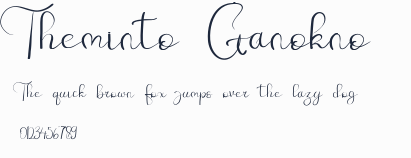 Theminto Ganokno
The quick brown fox jumps over the lazy dog
0123456789